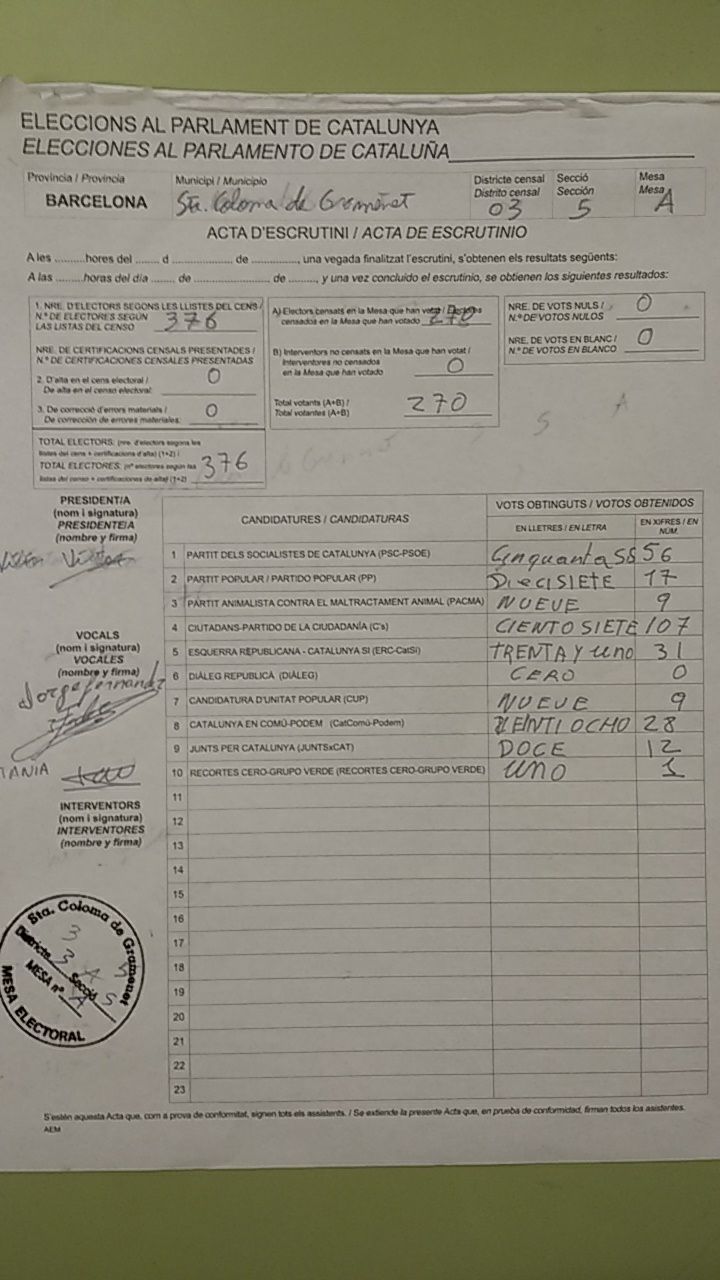 ELECCIONS AL PARLAMENT DE CATALUNYA
ELECCIONES AL PARLAMENTO DE CATALUÑA
Provincia / Provincia
BARCELONA
Municipi / Municipio
Sta. Coloma de Gramenet
Districte censal
Distrito censal
03
Secció
Sección
5
Mesa
Mesa
A
ACTA D'ESCRUTINI / ACTA DE ESCRUTINIO
A les ..........hores del ...... d .................. de ..............., una vegada finalitzat l'escrutini, s'obtenen els resultats següents:
A las .........horas del día ....... de ....................... de ........, y una vez concluido el escrutinio, se obtienen los siguientes resultados:
1. NRE. D'ELECTORS SEGONS LES LLISTES DEL CENS /
N.º DE ELECTORES SEGÚN
LAS LISTAS DEL CENSO 376
NRE. DE CERTIFICACIONS CENSALS PRESENTADES /
N.º DE CERTIFICACIONES CENSALES PRESENTADAS
2. D'alta en el cens electoral /
De alta en el censo electoral: 0
3. De correcció d'errors materials /
De corrección de errores materiales: 0
TOTAL ELECTORS: (nre. d'electors segons les
llistes del cens + certificacions d'alta) (1+2) /
TOTAL ELECTORES: (nº electores según las
listas del censo + certificaciones de alta) (1+2) 376
A) Electors censats en la Mesa que han votat / Electores
censados en la Mesa que han votado 270
B) Interventors no censats en la Mesa que han votat /
Interventores no censados
en la Mesa que han votado 0
Total votants (A+B) /
Total votantes (A+B) 270
NRE. DE VOTS NULS /
N.º DE VOTOS NULOS 0
NRE. DE VOTS EN BLANC /
N.º DE VOTOS EN BLANCO 0
S A
PRESIDENT/A
(nom i signatura)
PRESIDENTE/A
(nombre y firma)
VOCALS
(nom i signatura)
VOCALES
(nombre y firma)
Jorge Fernandez
TANIA
INTERVENTORS
(nom i signatura)
INTERVENTORES
(nombre y firma)
CANDIDATURES / CANDIDATURAS
VOTS OBTINGUTS / VOTOS OBTENIDOS
EN LLETRES / EN LETRA
EN XIFRES / EN NÚM.
1 PARTIT DELS SOCIALISTES DE CATALUNYA (PSC-PSOE) 56
2 PARTIT POPULAR / PARTIDO POPULAR (PP) DIECISIETE 17
3 PARTIT ANIMALISTA CONTRA EL MALTRACTAMENT ANIMAL (PACMA) NUEVE 9
4 CIUTADANS-PARTIDO DE LA CIUDADANÍA (C's) CIENTO SIETE 107
5 ESQUERRA REPUBLICANA - CATALUNYA SI (ERC-CatSí) TRENTA Y UNO 31
6 DIÀLEG REPUBLICÀ (DIÀLEG) CERO 0
7 CANDIDATURA D'UNITAT POPULAR (CUP) NUEVE 9
8 CATALUNYA EN COMÚ-PODEM (CatComú-Podem) VEINTIOCHO 28
9 JUNTS PER CATALUNYA (JUNTSxCAT) DOCE 12
10 RECORTES CERO-GRUPO VERDE (RECORTES CERO-GRUPO VERDE) UNO 1
11
12
13
14
15
16
17
18
19
20
21
22
23
Sta. Coloma de Gramenet
Districte 3 Secció 5
MESA nº A
MESA ELECTORAL
S'estén aquesta Acta que, com a prova de conformitat, signen tots els assistents. / Se extiende la presente Acta que, en prueba de conformidad, firman todos los asistentes.
AEM